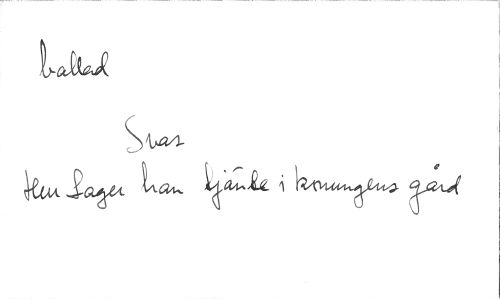 ballad
Svar
Herr Lager han tjänte i konungens gård